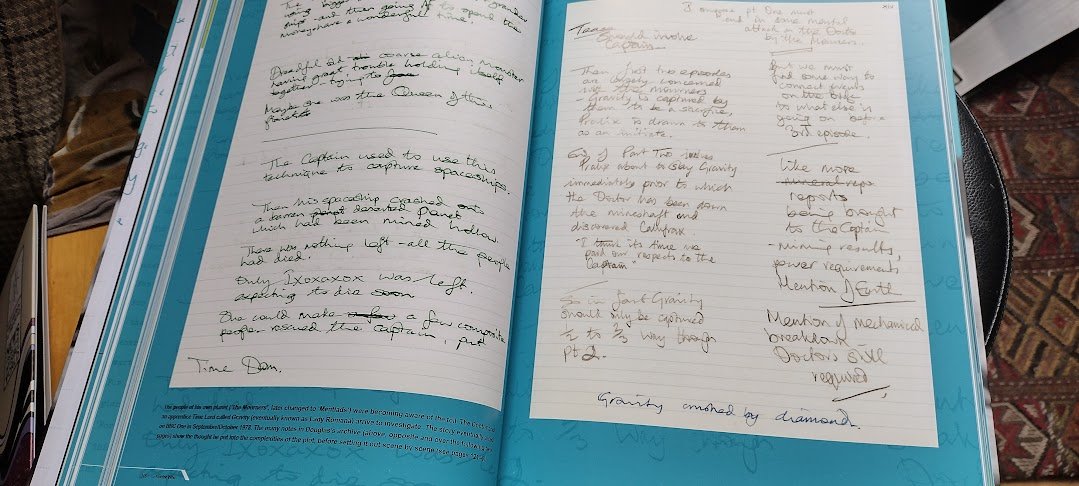 The
using bigger
ships and then going off to spend the
money & have a wonderful time.
Dreadful old alien monster
having great trouble holding itself
together, trying to
Maybe she was the Queen of this
planet
The Captain used to use this
technique to capture spaceships.
Then his spaceship crashed onto
a barren planet deserted planet
which had been mined hollow.
There was nothing left - all the people
had died.
Only Ixoxaxox was left.
expecting to die soon
She could make a few composite
people rescued the captain, put
Time Dam.
The people of his own planet ('The Mourners', later changed to 'Mentiads') were becoming aware of the toll. The Doctor and
an apprentice Time Lord called Gravity (eventually known as Lady Romana) arrive to investigate. The story
on BBC One in September/October 1978. The many notes in Douglas's archive (above, opposite and over the following
pages) show the thought he put into the complexities of the plot, before setting it out scene by scene (see pages
XIV
Tease
Should involve
Captain
of one must
'end' in some mental
attack on the Doctor
by the Mourners.
Then first two episodes
are largely concerned
with the mourners
- Gravity is captured by
them to be a sacrifice,
Pralix is drawn to them
as an initiate.
But we must
find some way to
connect events
on the
to what else is
going on before
3rd episode.
End of Part Two
Pralix about to slay Gravity
immediately prior to which
the Doctor has been down
the mineshaft and
discovered Callifrax.
"I think its time we
paid our respects to the
Captain"
Like more
reports
being brought
to the Captain
- mining results,
power requirements
Mention of Earth
So in fact Gravity
should only be captured
1/2 to 2/3 way through
pt 2.
Mention of mechanical
breakdown -
Doctor's skill
required
Gravity crushed by diamond.